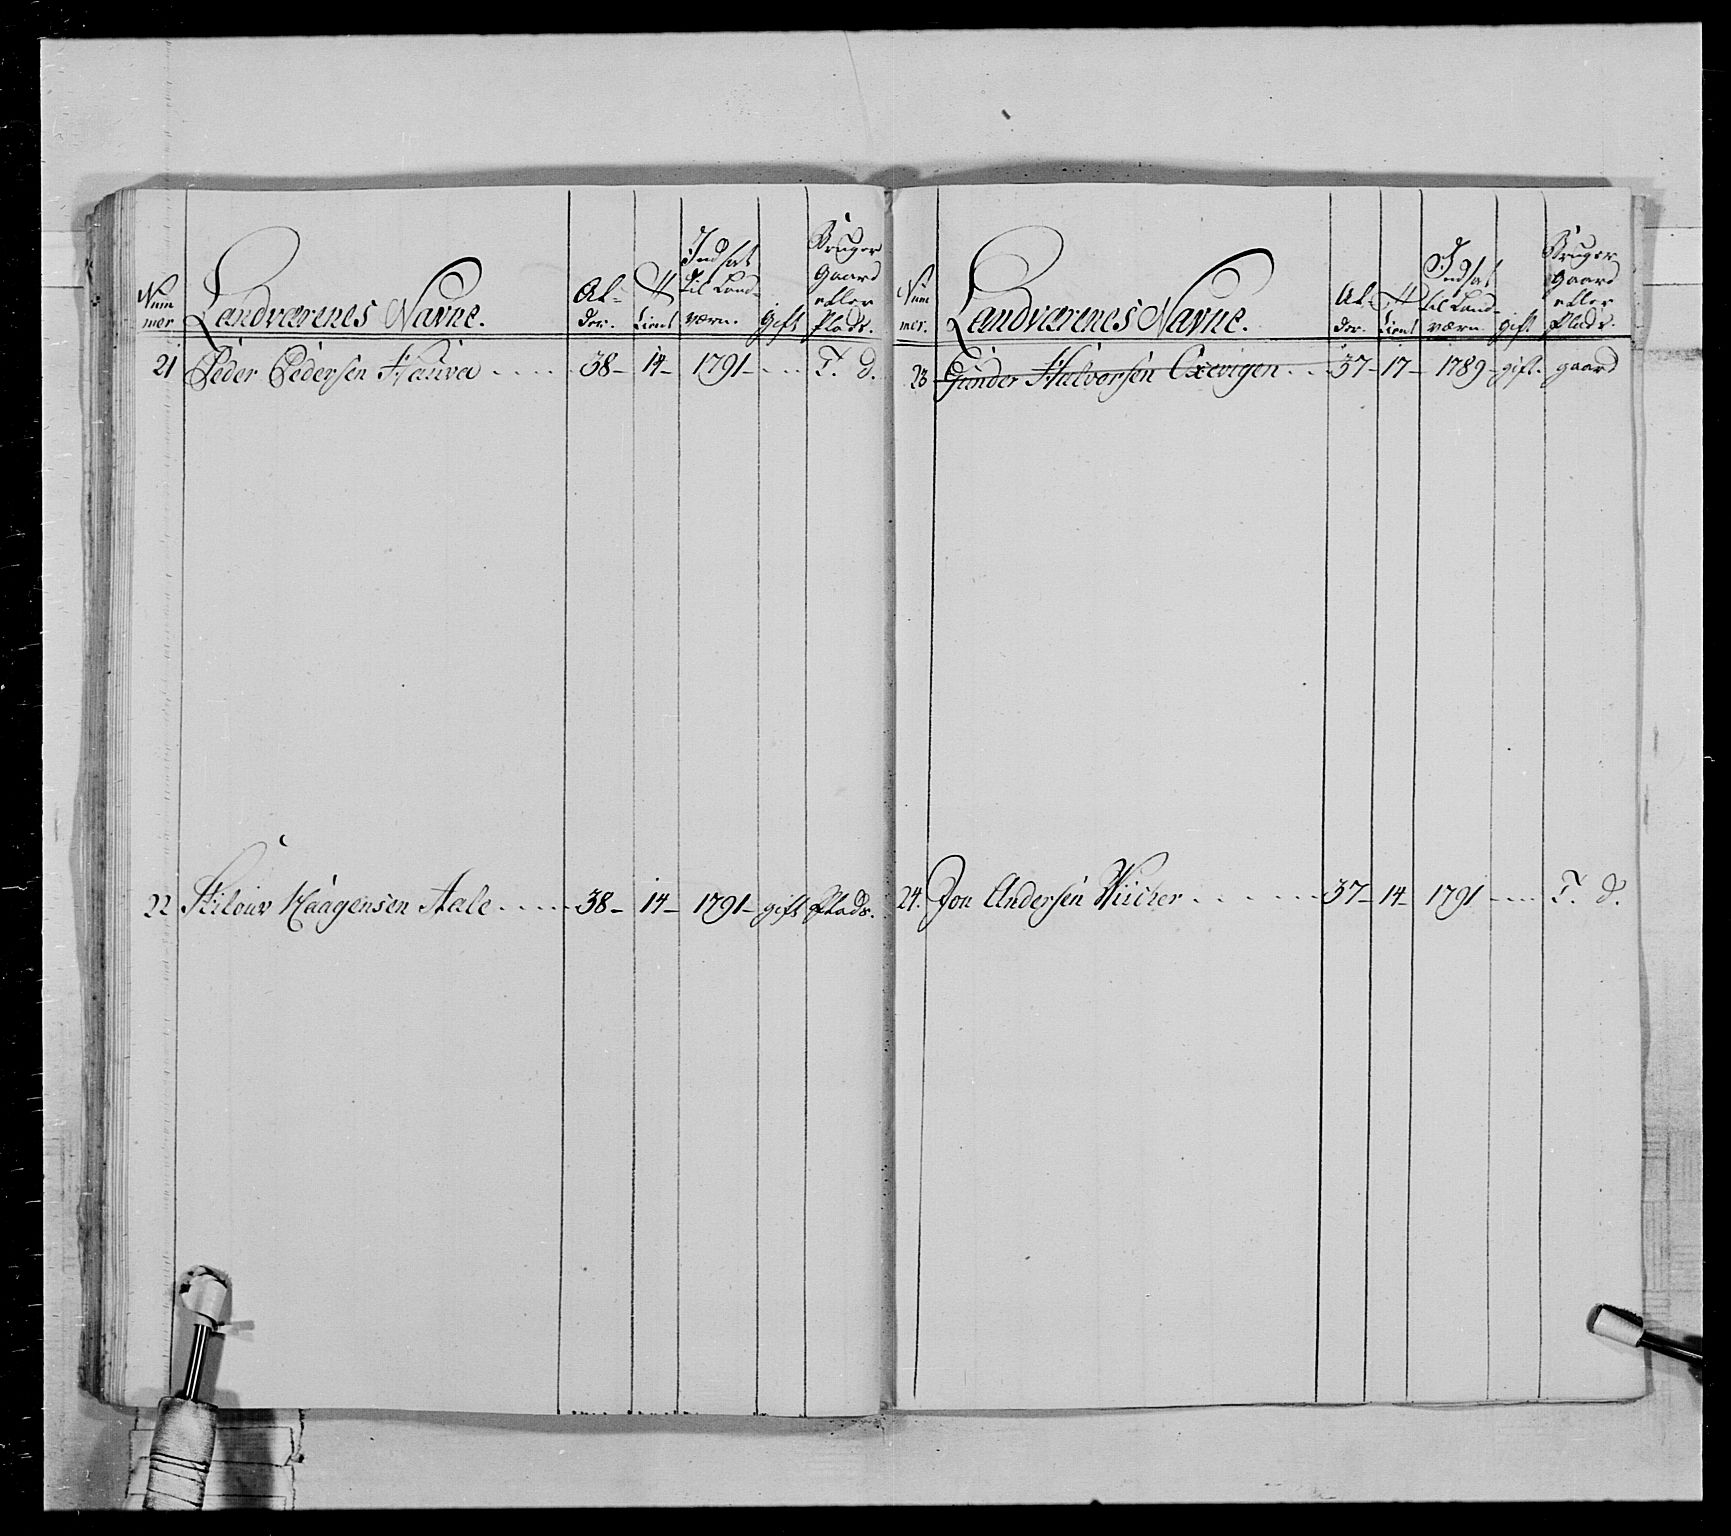 Num
mer
Landværenes Navne.
Al-
der.
Tient
Indsat
til Land-
værn.
Gift
Bruger
Gaard
eller
Plads.
21 Peder Pedersen Hauva ..... 38- 14- 1791- ... T. d.
22 Haagensen Aale ..... 38- 14- 1791- gift Plads.
Num
mer.
Landværenes Navne.
Al-
der.
Tient
Indsat
til Land-
værn.
gift
Bruger
Gaard
eller
Plads.
23 Gunder Halvorsen Oxevigen .. 37- 17- 1789- gift. gaard
24. Jon Andersen ...... 37- 14- 1791 .... T. d.